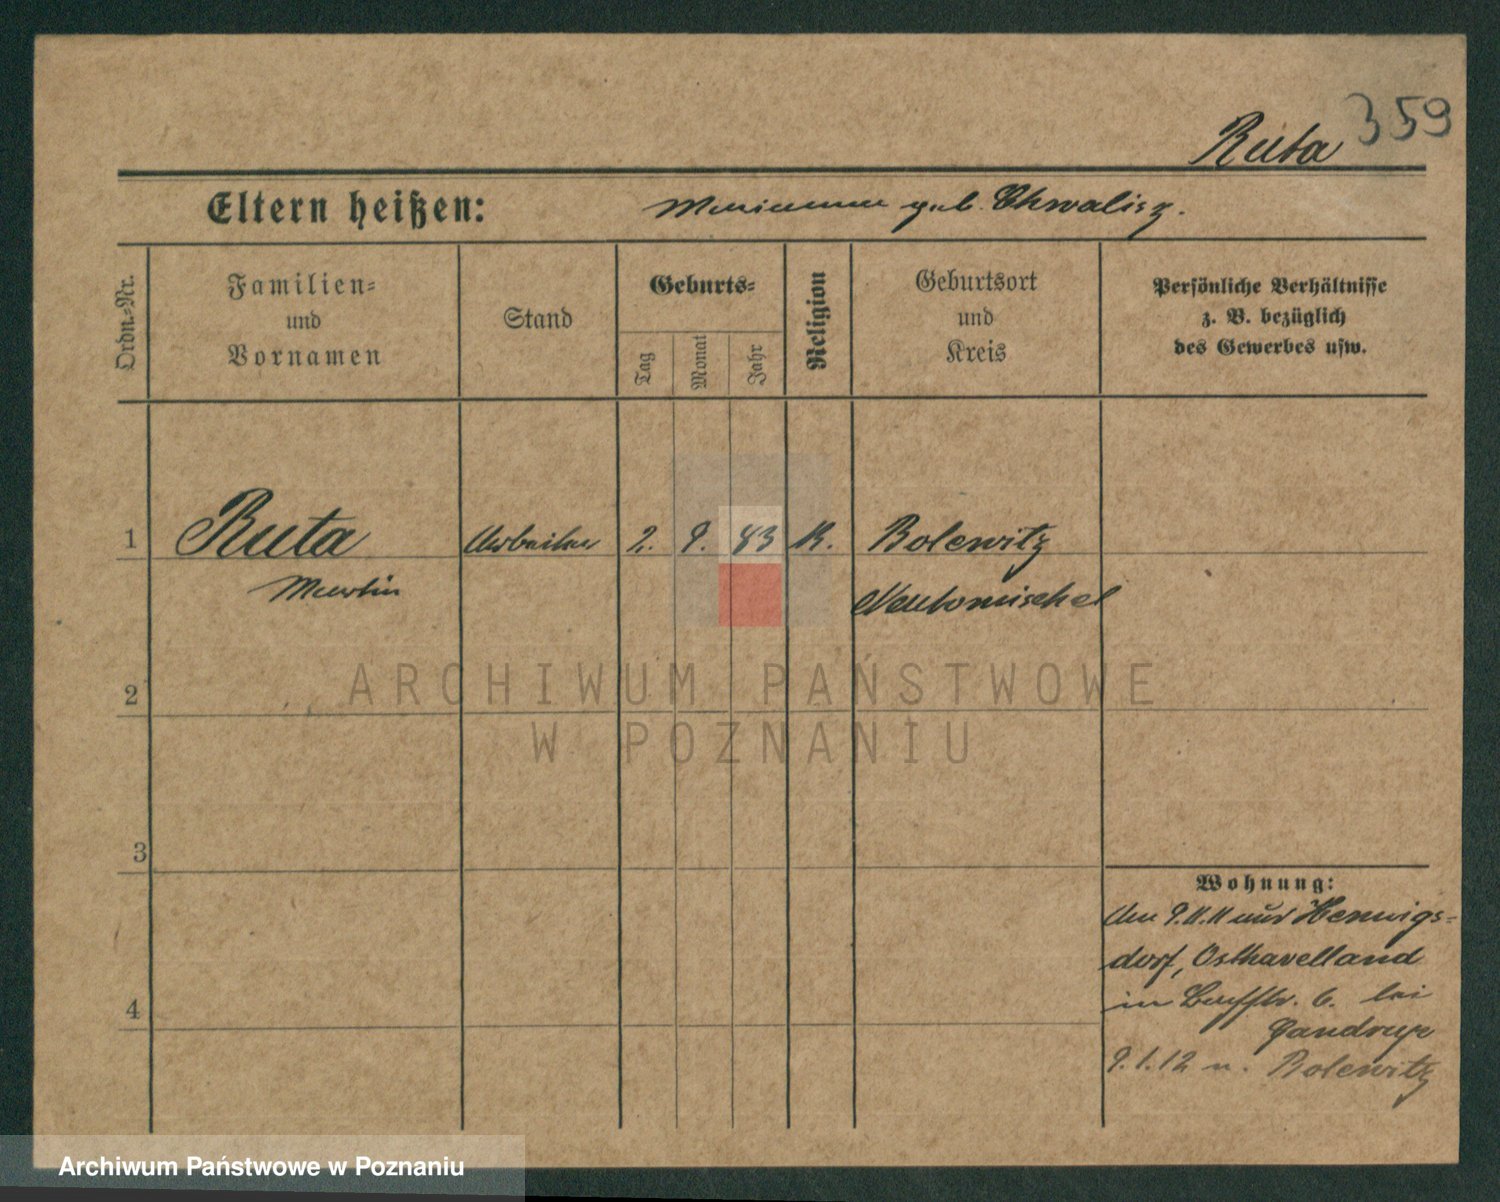 359
Ruta
Eltern heißen: Marianna geb. Chwalisz.
Ordn.-Nr.
Familien-
und
Vornamen
Stand
Geburts-
Tag
Monat
Jahr
Religion
Geburtsort
und
Kreis
Persönliche Verhältnisse
z. B. bezüglich
des Gewerbes usw.
1 Ruta Arbeiter 2. 9. 83 K. Bolewitz
Martin Neutomischel
2
3
4
Wohnung:
Am 9.11.11 aus Hennigs-
dorf, Osthavelland
in 6. bei
9.1.12 n. Bolewitz
ARCHIWUM PAŃSTWOWE
W POZNANIU
Archiwum Państwowe w Poznaniu